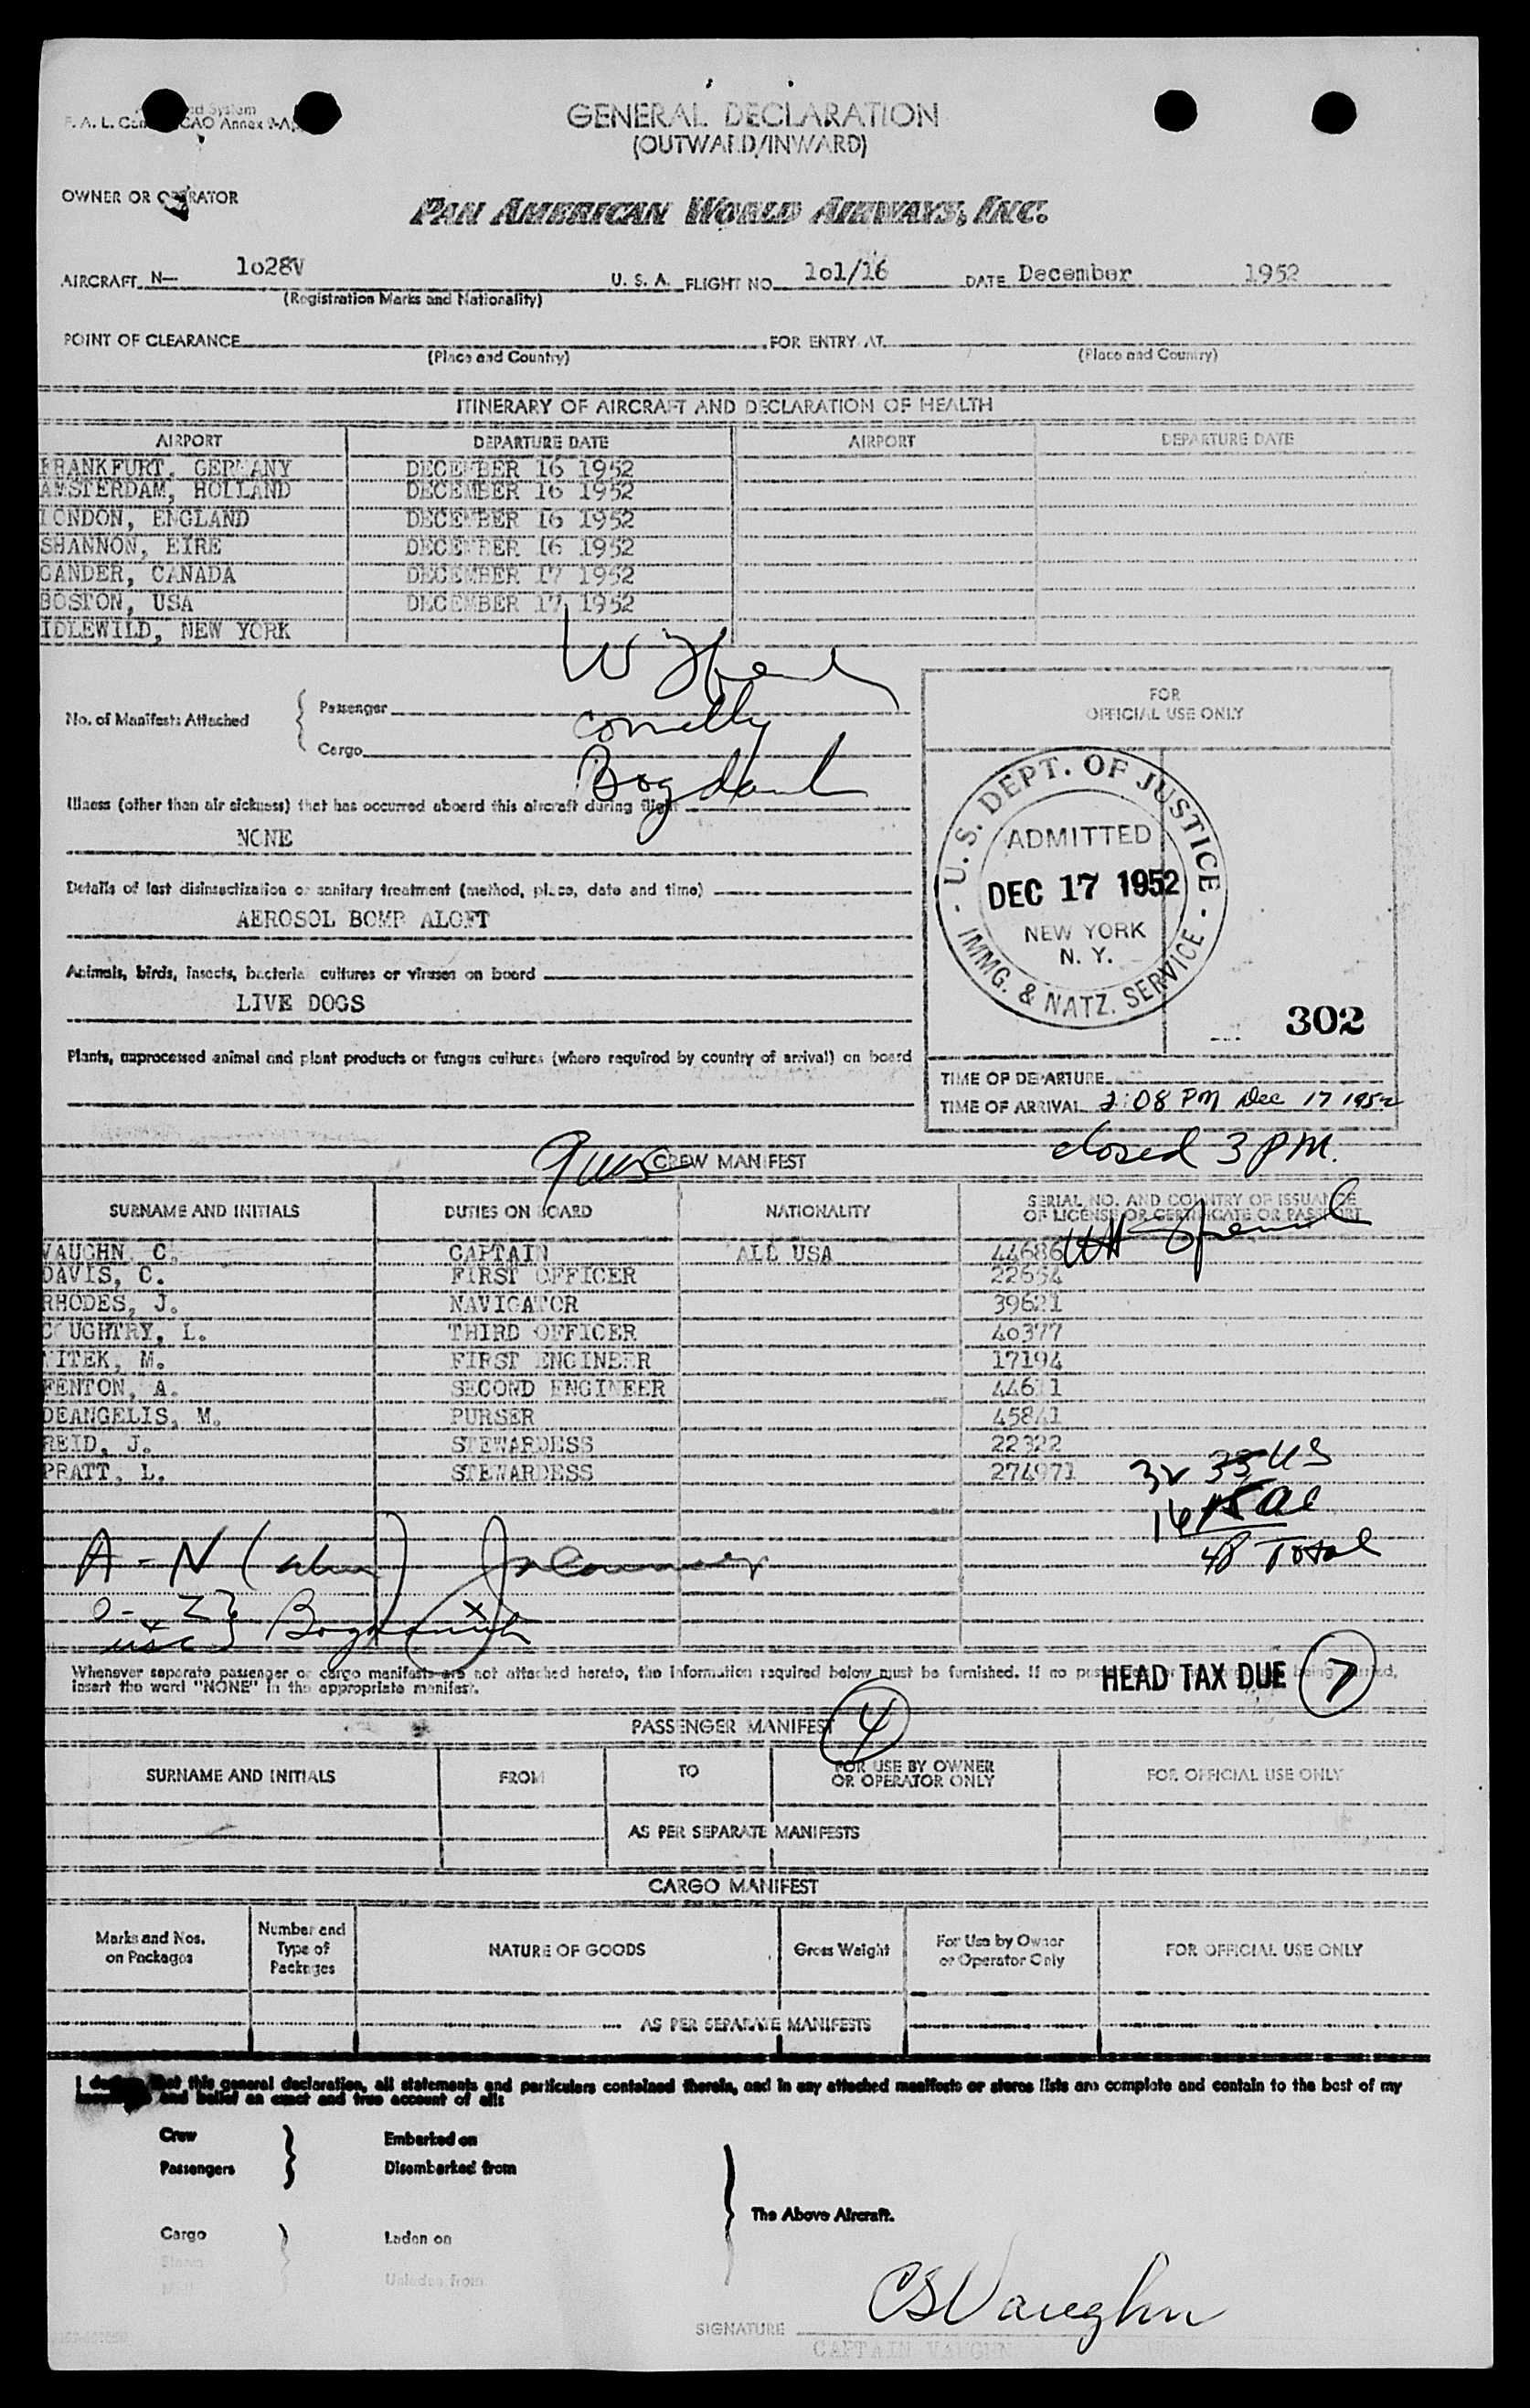 GENERAL DECLARATION
(OUTWARD/INWARD)
OWNER OR OPERATOR
PAN AMERICAN WORLD AIRWAYS, INC.
AIRCRAFT N— 1o28V U. S. A. FLIGHT NO. 1o1/16 DATE December 1952
(Registration Marks and Nationality)
POINT OF CLEARANCE FOR ENTRY AT
(Place and Country) (Place and Country)
ITINERARY OF AIRCRAFT AND DECLARATION OF HEALTH
AIRPORT DEPARTURE DATE AIRPORT DEPARTURE DATE
FRANKFURT, GERMANY DECEMBER 16 1952
AMSTERDAM, HOLLAND DECEMBER 16 1952
LONDON, ENGLAND DECEMBER 16 1952
SHANNON, EIRE DECEMBER 16 1952
GANDER, CANADA DECEMBER 17 1952
BOSTON, USA DECEMBER 17 1952
IDLEWILD, NEW YORK
No. of Manifests Attached
Passenger
Connelly
Cargo
FOR
OFFICIAL USE ONLY
U.S. DEPT. OF JUSTICE
ADMITTED
DEC 17 1952
NEW YORK
N. Y.
IMMG. & NATZ. SERVICE
302
Illness (other than air sickness) that has occurred aboard this aircraft during flight
NONE
Details of last disinsectization or sanitary treatment (method, place, date and time)
AEROSOL BOMB ALOFT
Animals, birds, insects, bacteria cultures or viruses on board
LIVE DOGS
Plants, unprocessed animal and plant products or fungus cultures (where required by country of arrival) on board
TIME OF DEPARTURE
TIME OF ARRIVAL 2:08 PM Dec 17 1952
closed 3 PM.
CREW MANIFEST
SURNAME AND INITIALS DUTIES ON BOARD NATIONALITY SERIAL NO. AND COUNTRY OF ISSUANCE
OF LICENSE OR CERTIFICATE OR PASSPORT
VAUGHN C. CAPTAIN ALL USA 44686
DAVIS, C. FIRST OFFICER 22654
RHODES, J. NAVIGATOR 39621
COUGHTRY, L. THIRD OFFICER 4o377
VITEK, M. FIRST ENGINEER 17194
FENTON, A. SECOND ENGINEER
DEANGELIS, M. PURSER 45841
REID, J. STEWARDESS 22322
PRATT, L. STEWARDESS 274971
32 33 US
16 15 al
48 Total
A - N (alien)
Whenever separate passenger or cargo manifests are not attached hereto, the information required below must be furnished. If no
insert the word "NONE" in the appropriate manifest.
HEAD TAX DUE 7
PASSENGER MANIFEST 4
SURNAME AND INITIALS FROM TO FOR USE BY OWNER
OR OPERATOR ONLY FOR OFFICIAL USE ONLY
AS PER SEPARATE MANIFESTS
CARGO MANIFEST
Marks and Nos.
on Packages
Number and
Type of
Packages
NATURE OF GOODS Gross Weight
For Use by Owner
or Operator Only
FOR OFFICIAL USE ONLY
AS PER SEPARATE MANIFESTS
I declare that this general declaration, all statements and particulars contained therein, and in any attached manifests or stores lists are complete and contain to the best of my
knowledge and belief an exact and true account of all:
Crew Embarked on
Passengers Disembarked from
The Above Aircraft.
Cargo Laden on
Stores
Mail Unladen from
CSVaughn
SIGNATURE
CAPTAIN VAUGHN